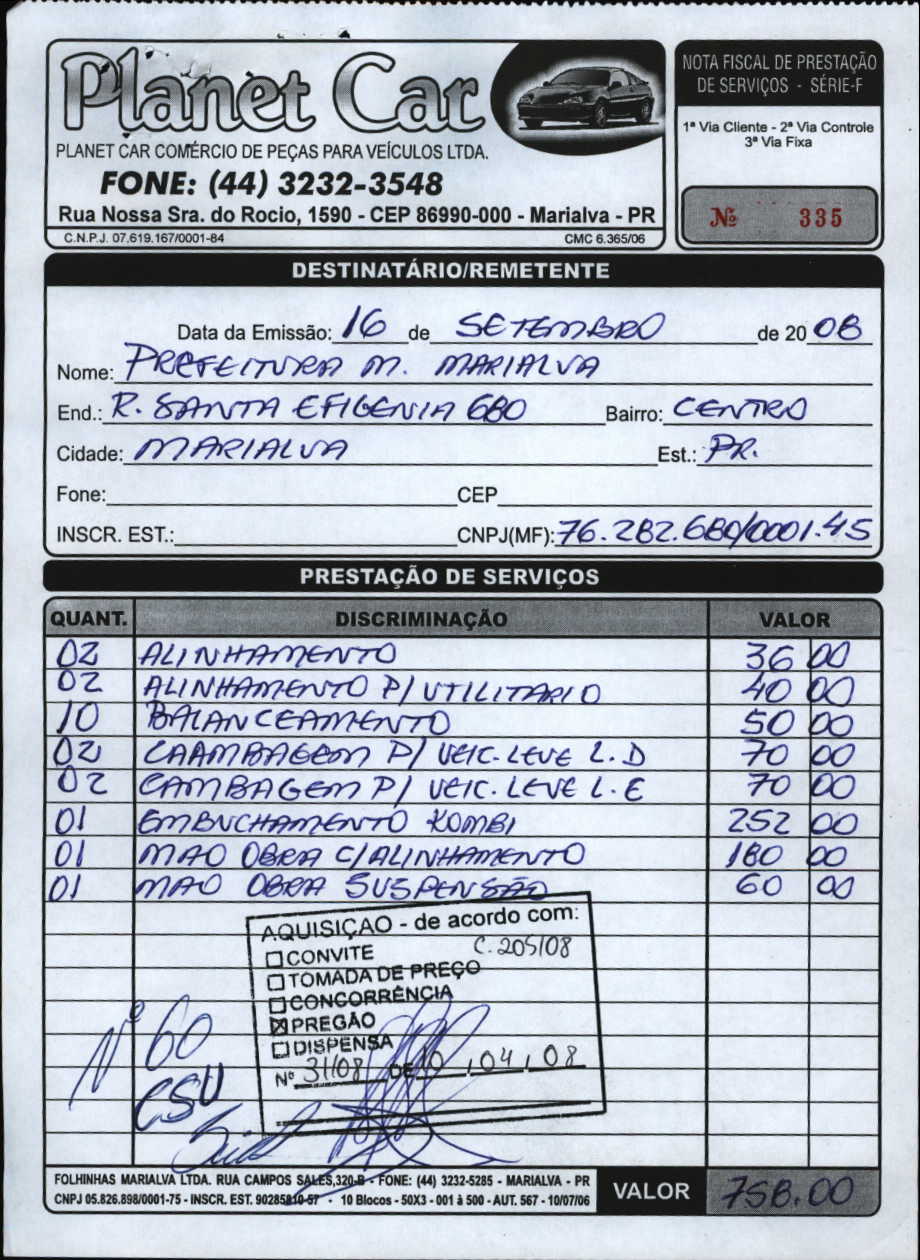 Planet Car
PLANET CAR COMÉRCIO DE PEÇAS PARA VEÍCULOS LTDA.
FONE: (44) 3232-3548
Rua Nossa Sra. do Rocio, 1590 - CEP 86990-000 - Marialva - PR
C.N.P.J. 07.619.167/0001-84 CMC 6.365/06
NOTA FISCAL DE PRESTAÇÃO
DE SERVIÇOS - SÉRIE-F
1ª Via Cliente - 2ª Via Controle
3ª Via Fixa
Nº 335
DESTINATÁRIO/REMETENTE
Data da Emissão: 16 de SETEMBRO de 2008
Nome: PREFEITURA M. MARIALVA
End.: R. SANTA EFIGENIA 680 Bairro: CENTRO
Cidade: MARIALVA Est.: PR.
Fone: CEP
INSCR. EST.: CNPJ(MF): 76.282.680/0001.45
PRESTAÇÃO DE SERVIÇOS
QUANT. DISCRIMINAÇÃO VALOR
02 ALINHAMENTO 36 00
02 ALINHAMENTO P/ UTILITARIO 40 00
10 BALANCEAMENTO 50 00
02 CAAMBAGEM P/ VEIC. LEVE L.D 70 00
02 CAMBAGEM P/ VEIC. LEVE L.E 70 00
01 EMBUCHAMENTO KOMBI 252 00
01 MAO OBRA C/ALINHAMENTO 180 00
01 MAO OBRA SUSPENSÃO 60 00
AQUISIÇÃO - de acordo com:
C. 205/08
CONVITE
TOMADA DE PREÇO
CONCORRÊNCIA
PREGÃO
DISPENSA
Nº 31/08 DE 10 / 04 / 08
Nº 60
CSU
FOLHINHAS MARIALVA LTDA. RUA CAMPOS SALES,320-B - FONE: (44) 3232-5285 - MARIALVA - PR
CNPJ 05.826.898/0001-75 - INSCR. EST. 90285810-57 - 10 Blocos - 50X3 - 001 à 500 - AUT. 567 - 10/07/06
VALOR 758.00